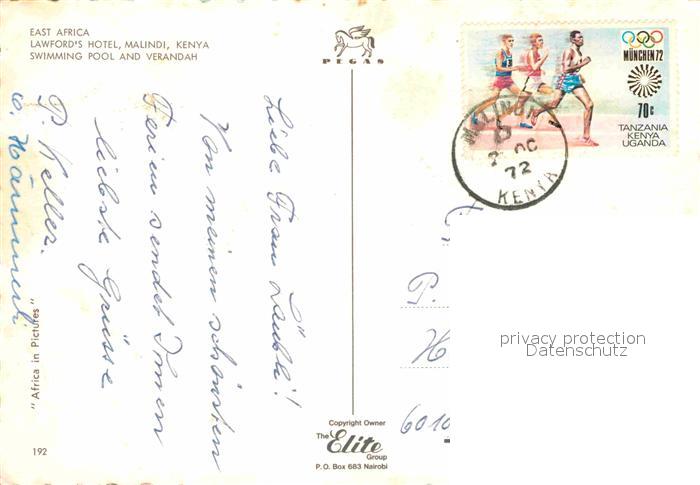 EAST AFRICA
LAWFORD'S HOTEL, MALINDI, KENYA
SWIMMING POOL AND VERANDAH
PEGAS
MÜNCHEN 72
70c
TANZANIA
KENYA
UGANDA
MALINDI
OC
72
KENYA
Liebe Frau
Von meinen schönsten
Ferien sendet Ihnen
liebste Grüsse
P. Keller.
"Africa in Pictures"
192
Copyright Owner
The Elite
Group
P.O. Box 683 Nairobi
P.
H
6010
privacy protection
Datenschutz